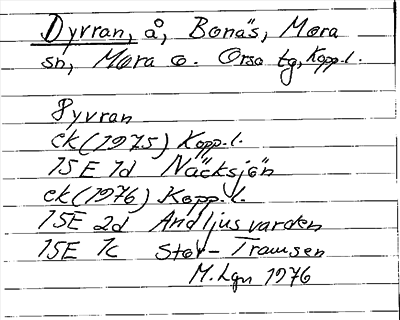 Dyvran, å, Bonäs, Mora
sn, Mora o. Orsa tg, Kopp. l.
Pyvran
ek (1975) Kopp. l.
15E 1d Näcksjön
ek (1976) Kopp. l.
15E 2d Andljusvarden
15E 1c Stor-Tramsen
M. Lgn 1976